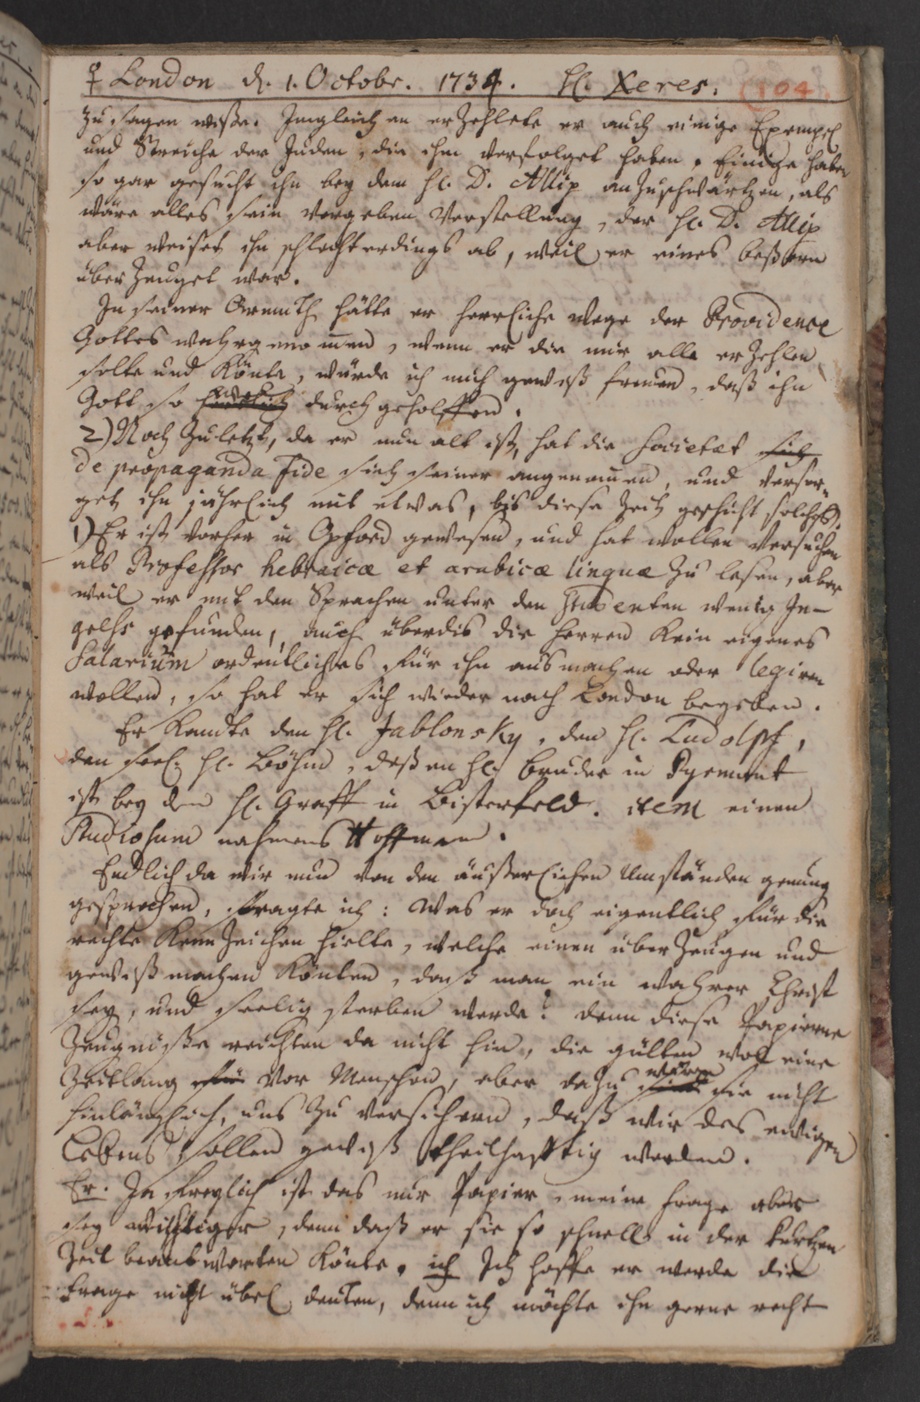 ♀ London d. 1. Octobr. 1734. H. Xeres. (104
zu sagen wiße. Imgleichen erzehlete er auch einige Exempel
und Streiche der Juden, die ihn verfolget haben. Einige haben
so gar gesucht ihn bey dem H. D. Allix anzuschwärtzen, als
wäre alles sein vorgeben Verstellung, der H. D. Allix
aber weiset ihn schlechterdings ab, weil er eines beßern
überzeuget war.
In seiner Armuth hätte er herrliche Wege der Providence
Gottes wahrgenommen, wenn er die mir alle erzehlen
solte und könte, würde ich mich gewiß freuen, daß ihn
Gott so durch geholffen.
2) Noch zuletzt, da er nun alt ist, hat die Societet sich
de propaganda Fide sich seiner angenommen, und versor-
get ihn jährlich mit etwas, bis diese Zeit geschicht solches.
1) Er ist vorher in Oxford gewesen, und hat wollen versuchen
als Professor hebraicæ et arabicæ linguæ zu lesen, aber
weil er mit den Sprachen unter den Studenten wenig In-
gels gefunden, auch überdis die Herren kein eigenes
Salarium ordentliches für ihn ausmachen oder legiren
wollen, so hat er sich wieder nach London begeben.
Er kandte den H. Jablonsky, den H. Ludolph,
den seel. H. Böhm, deßen H. Bruder in Pyrmont
ist bey dem H. Graff in Bisterfeld. item einen
Studiosum nahmens Hoffman.
Endlich da wir nun von den äußerlichen Umständen genung
gesprochen, fragte ich: Was er doch eigentlich für die
rechte Kennzeichen hielte, welche einen überzeugen und
gewiß machen könten, daß man ein wahrer Christ
sey, und seelig sterben werde? denn diese Papierne
Zeugniße reichten da nicht hin, die gülten wol eine
Zeitlang für vor Menschen, aber dazu wären sie nicht
hinlänglich, uns zu versichern, daß wir des ewigen
Lebens sollen gewiß theilhafftig werden.
Er. Ja freylich ist das nur Papier, meine Frage aber
sey wichtiger, denn daß er sie so schnell in der kurtzen
Zeit beantworten könte. ich Ich hoffe er werde die
Frage nicht übel deuten, denn ich möchte ihn gerne recht